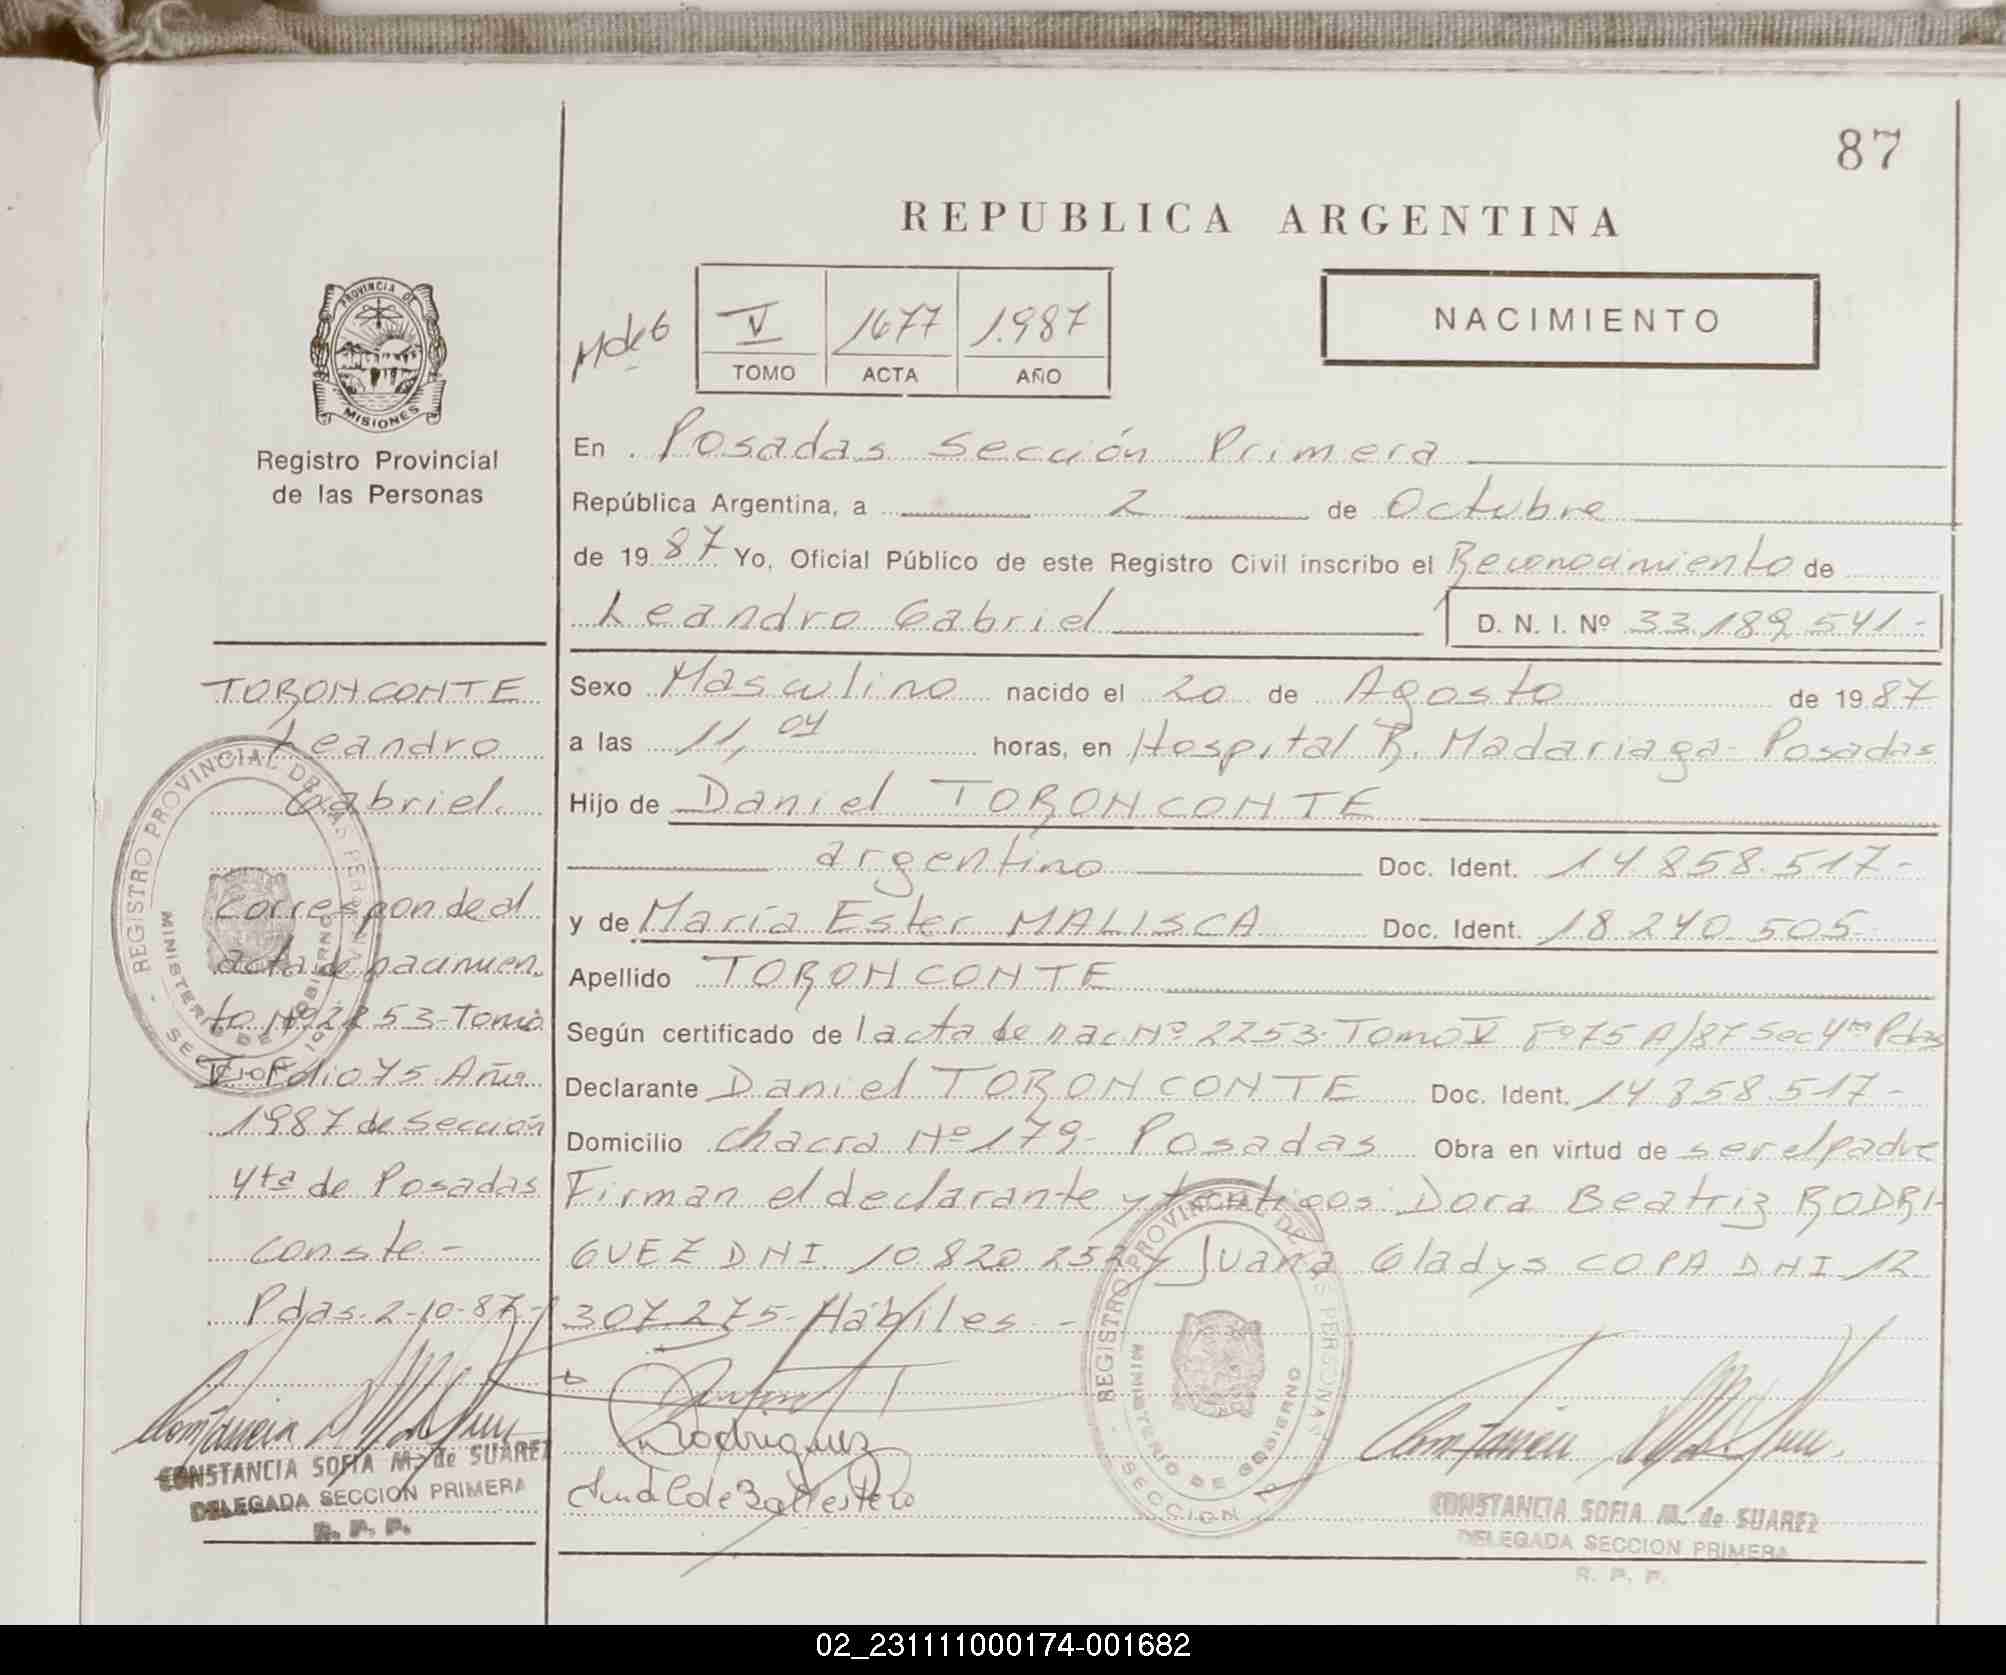 87
REPUBLICA ARGENTINA
PROVINCIA DE
MISIONES
Registro Provincial
de las Personas
V 1677 1.987
TOMO ACTA AÑO
NACIMIENTO
En Posadas Sección Primera
República Argentina, a 2 de Octubre
de 19 87 Yo, Oficial Público de este Registro Civil inscribo el Reconocimiento de
Leandro Gabriel D. N. I. Nº 33.189.541.-
Sexo Masculino nacido el 20 de Agosto de 19 87
a las 11,04 horas, en Hospital R. Madariaga - Posadas
Hijo de Daniel TORONCONTE
argentino Doc. Ident. 14.858.517-
y de María Ester MALISCA Doc. Ident. 18.240.505-
Apellido TORONCONTE
Según certificado de l acta de nac Nº 2253- Tomo V Fº 75 A/87 Sec 4ta Pdas
Declarante Daniel TORONCONTE Doc. Ident. 14.858.517-
Domicilio Chacra Nº 179- Posadas Obra en virtud de ser el padre
Firman el declarante y testigos: Dora Beatriz RODRI-
GUEZ DNI 10.820.252 y Juana Gladys COPA DNI 12
307.275- Hábiles -
Rodriguez
CONSTANCIA SOFIA M. de SUAREZ
DELEGADA SECCION PRIMERA
R. P. P.
TORONCONTE
Leandro
Gabriel.
corresponde al
acta de nacimien
to Nº 2253-Tomo
V Folio 75 Año
1987 de Sección
4ta de Posadas
conste -
Pdas. 2-10-87-
CONSTANCIA SOFIA M. de SUAREZ
DELEGADA SECCION PRIMERA
R. P. P.
REGISTRO PROVINCIAL DE LAS PERSONAS
MINISTERIO DE GOBIERNO
REGISTRO PROVINCIAL DE LAS PERSONAS
MINISTERIO DE GOBIERNO
SECCION
02_231111000174-001682